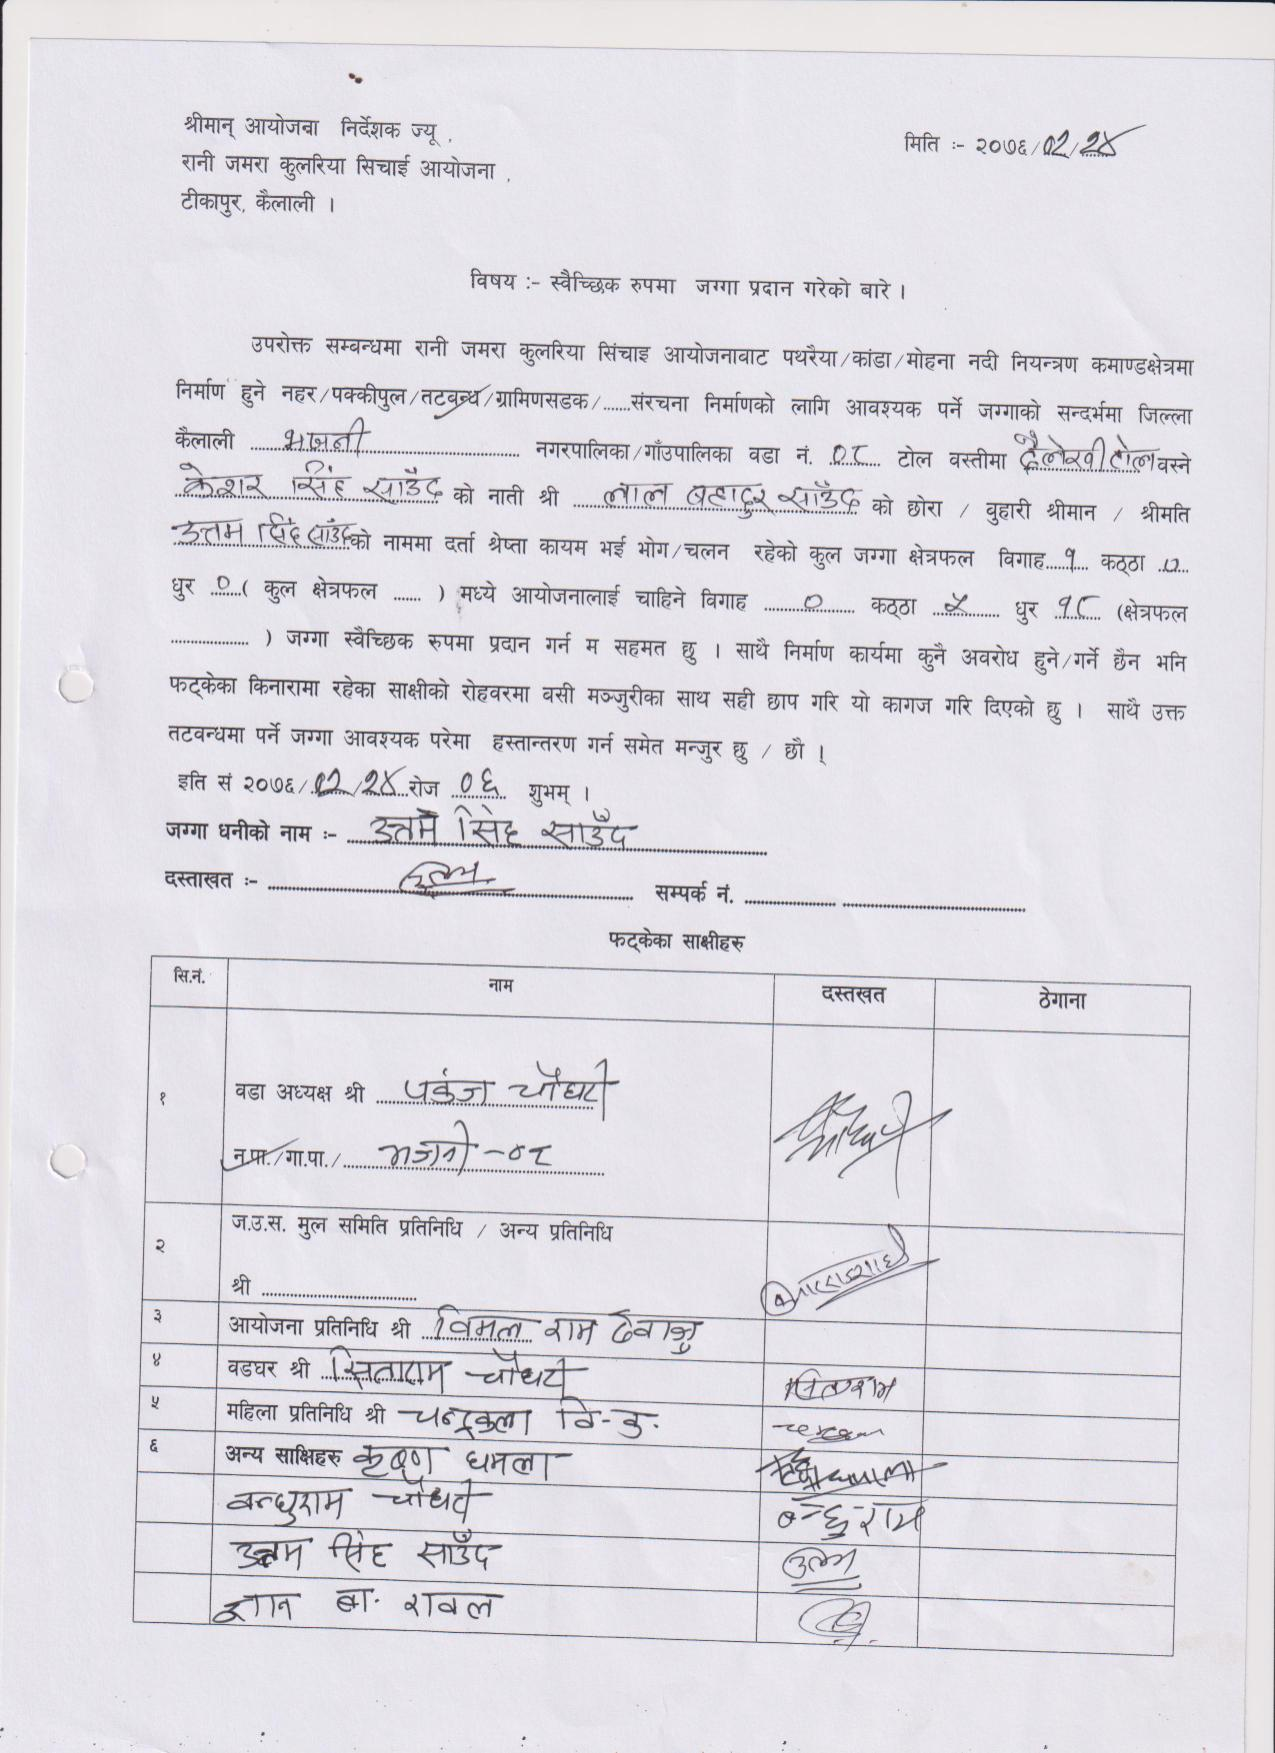 श्रीमान् आयोजना निर्देशक ज्यू ,
मिति :- २०७६/०२/२४
रानी जमरा कुलरिया सिचाई आयोजना ,
टीकापुर, कैलाली ।
विषय :- स्वैच्छिक रुपमा जग्गा प्रदान गरेको बारे ।
उपरोक्त सम्बन्धमा रानी जमरा कुलरिया सिंचाइ आयोजनावाट पथरैया/कांडा/मोहना नदी नियन्त्रण कमाण्डक्षेत्रमा
निर्माण हुने नहर/पक्कीपुल/तटबन्ध/ग्रामिणसडक/......संरचना निर्माणको लागि आवश्यक पर्ने जग्गाको सन्दर्भमा जिल्ला
कैलाली भजनी नगरपालिका/गाँउपालिका वडा नं. ०८ टोल वस्तीमा दैलेखी टोल वस्ने
केशर सिंह साउँद को नाती श्री लाल बहादुर साउँद को छोरा / वुहारी श्रीमान / श्रीमति
उत्तम सिंह साउँद को नाममा दर्ता श्रेष्ता कायम भई भोग/चलन रहेको कुल जग्गा क्षेत्रफल विगाह १ कठ्ठा ०
धुर ० ( कुल क्षेत्रफल ...... ) मध्ये आयोजनालाई चाहिने विगाह ० कठ्ठा ५ धुर १८ (क्षेत्रफल
.................. ) जग्गा स्वैच्छिक रुपमा प्रदान गर्न म सहमत छु । साथै निर्माण कार्यमा कुनै अवरोध हुने/गर्ने छैन भनि
फट्केका किनारामा रहेका साक्षीको रोहवरमा वसी मञ्जुरीका साथ सही छाप गरि यो कागज गरि दिएको छु । साथै उक्त
तटवन्धमा पर्ने जग्गा आवश्यक परेमा हस्तान्तरण गर्न समेत मन्जुर छु / छौ ।
इति सं २०७६/०२/२४ रोज ०६ शुभम् ।
जग्गा धनीको नाम :- उत्तम सिंह साउँद
दस्ताखत :- उत्तम सम्पर्क नं. ....................
फट्केका साक्षीहरु
सि.नं. नाम दस्तखत ठेगाना
१ वडा अध्यक्ष श्री पकंज चौधरी
न.पा./गा.पा./ भजनी -०८
२ ज.उ.स. मुल समिति प्रतिनिधि / अन्य प्रतिनिधि
श्री ..................................
३ आयोजना प्रतिनिधि श्री विमल राम देवाजु
४ वडघर श्री सिताराम चौधरी सिताराम
५ महिला प्रतिनिधि श्री चन्द्रकला वि-क.
६ अन्य साक्षिहरु कृष्ण धमला
बन्धुराम चौधरी बन्धुराम
उत्तम सिंह साउँद उत्तम
ज्ञान बा. रावल